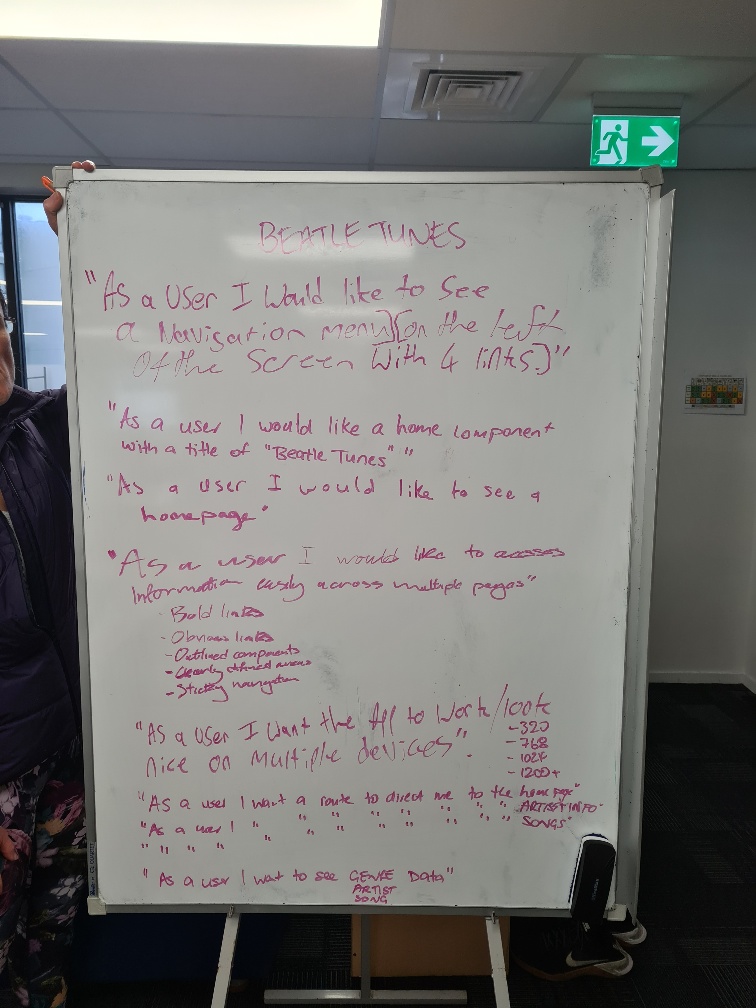 BEATLE TUNES
"As a User I Would like to See
a Navigation menu)(on the left
Of the Screen With 4 links.)"
"As a user I would like a home component
with a title of "Beatle Tunes" "
"As a user I would like to see a
homepage"
"As a user I would like to access
Information easily across multiple pages"
- Bold links
- Obvious links
- Outlined components
- Clearly defined areas
- Sticky navigation
"As a User I Want the App to Work/look
nice on Multiple devices".
- 320
- 768
- 1024
- 1200+
"As a user I want a route to direct me to the home page"
"As a user I " " " " " " " " ARTIST INFO"
" " " " " " " " " " " " SONGS"
"As a user I want to see GENRE Data"
ARTIST
SONG